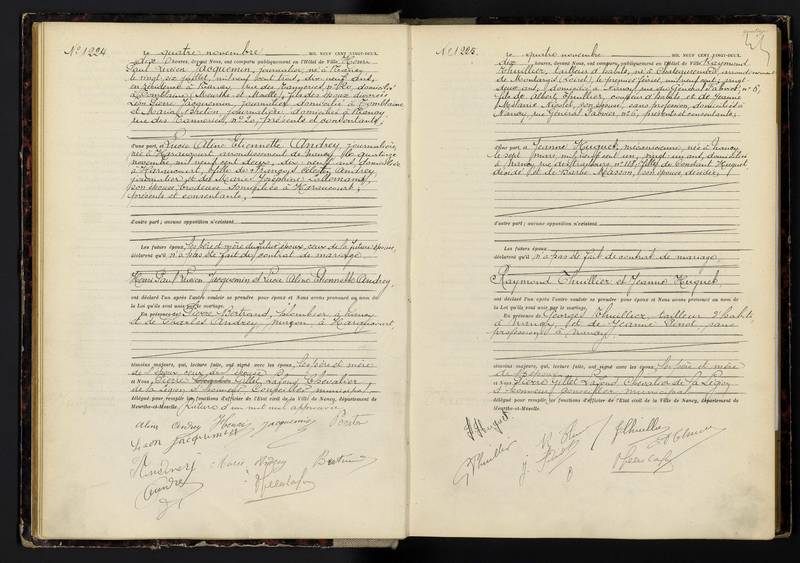 No 1224
Le quatre novembre MIL NEUF CENT VINGT-DEUX,
dix heures, devant Nous, ont comparu publiquement en l'Hôtel de Ville, Henri
Paul Lucien Jacquemin, journalier, né à Nancy
le vingt six juillet, mil neuf cent trois, dix neuf ans,
en résidence à Nancy, rue des Tanneries, no 20, domicilié
à Tomblaine, Meurthe et Moselle, fils des époux divorcés
Léon Pierre Jacquemin, journalier domicilié à Tomblaine
et Maria Breton, journalière, domiciliée à Nancy
rue des Tanneries, no 20, présents et consentants,
d'une part, et Lucie Aline Thionnette Andrey, journalière,
née à Haraucourt, arrondissement de Nancy, le quatorze
novembre, mil neuf cent deux, dix neuf ans, domiciliée
à Haraucourt, fille de François Célestin Andrey
journalier et de Marie Joséphine Lallemand,
son épouse, brodeuse, domiciliés à Haraucourt,
présents et consentants,
d'autre part; aucune opposition n'existant
Les futurs époux, les père et mère du futur époux, ceux de la future épouse,
déclarent qu'il n'a pas été fait de contrat de mariage.
Henri Paul Lucien Jacquemin et Lucie Aline Thionnette Andrey
ont déclaré l'un après l'autre vouloir se prendre pour époux et Nous avons prononcé au nom de
la Loi qu'ils sont unis par le mariage.
En présence de: Pierre Bertrand, plombier à Nancy
et de Charles Andrey, maçon, à Haraucourt,
témoins majeurs, qui, lecture faite, ont signé avec les époux, les père et mère
de l'époux, ceux de l'épouse
et Nous Pierre Gillet Lafond Chevalier
de la Légion d'honneur Conseiller municipal
délégué pour remplir les fonctions d'officier de l'Etat civil de la Ville de Nancy, département de
Meurthe-et-Moselle.
Aline Andrey Henri Jacquemin
Léon Jacquemin
Andrey Marie Andrey
Andre
No 1225
Le quatre novembre MIL NEUF CENT VINGT-DEUX,
dix heures, devant Nous, ont comparu publiquement en l'Hôtel de Ville, Raymond
Thuillier, tailleur d'habits, né à Chateaurenard, arrondissement
de Montargis, Loiret, le premier février, mil neuf cent, vingt-
deux ans, domicilié à Nancy, rue du Général Fabvier, no 6,
fils de Albert Thuillier, coupeur d'habits, et de Jeanne
son épouse, sans profession, domiciliés à
Nancy, rue Général Fabvier, no 6, présents et consentants,
d'une part, et Jeanne Huguet, mécanicienne, née à Nancy
le sept mars, mil neuf cent un, vingt un ans, domiciliée
à Nancy, rue de Strasbourg, fille de Constant Huguet,
décédé et de Barbe Masson, son épouse, décédée,
d'autre part; aucune opposition n'existant
Les futurs époux
déclarent qu'il n'a pas été fait de contrat de mariage,
Raymond Thuillier et Jeanne Huguet,
ont déclaré l'un après l'autre vouloir se prendre pour époux et Nous avons prononcé au nom de
la Loi qu'ils sont unis par le mariage.
En présence de: Georges Thuillier, tailleur d'habits
à Nancy, et de Jeanne Pinot, sans
profession, à Nancy,
témoins majeurs, qui, lecture faite, ont signé avec les époux, les père et mère
de l'époux
et Nous Pierre Gillet Lafond Chevalier de la Légion
d'honneur Conseiller municipal
délégué pour remplir les fonctions d'officier de l'Etat civil de la Ville de Nancy, département de
Meurthe-et-Moselle.
J Huguet
Thuillier